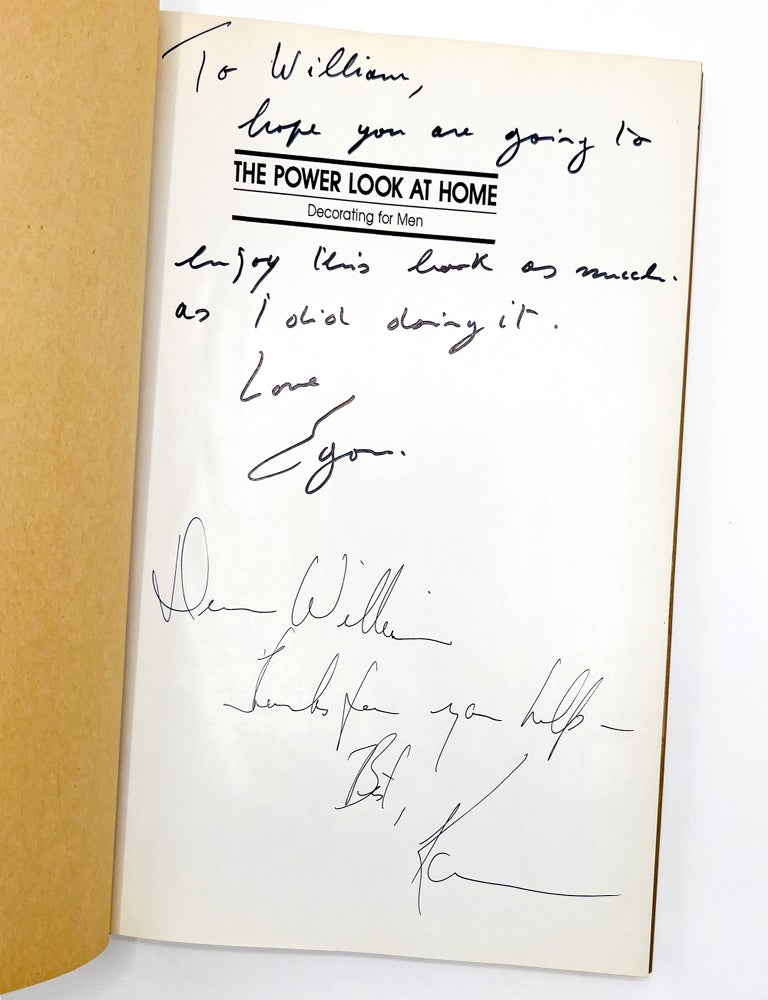 To William,
hope you are going to
THE POWER LOOK AT HOME
Decorating for Men
enjoy this book as much
as I did doing it.
Love
Egon.
Dear William
Thanks for your help –
Best,